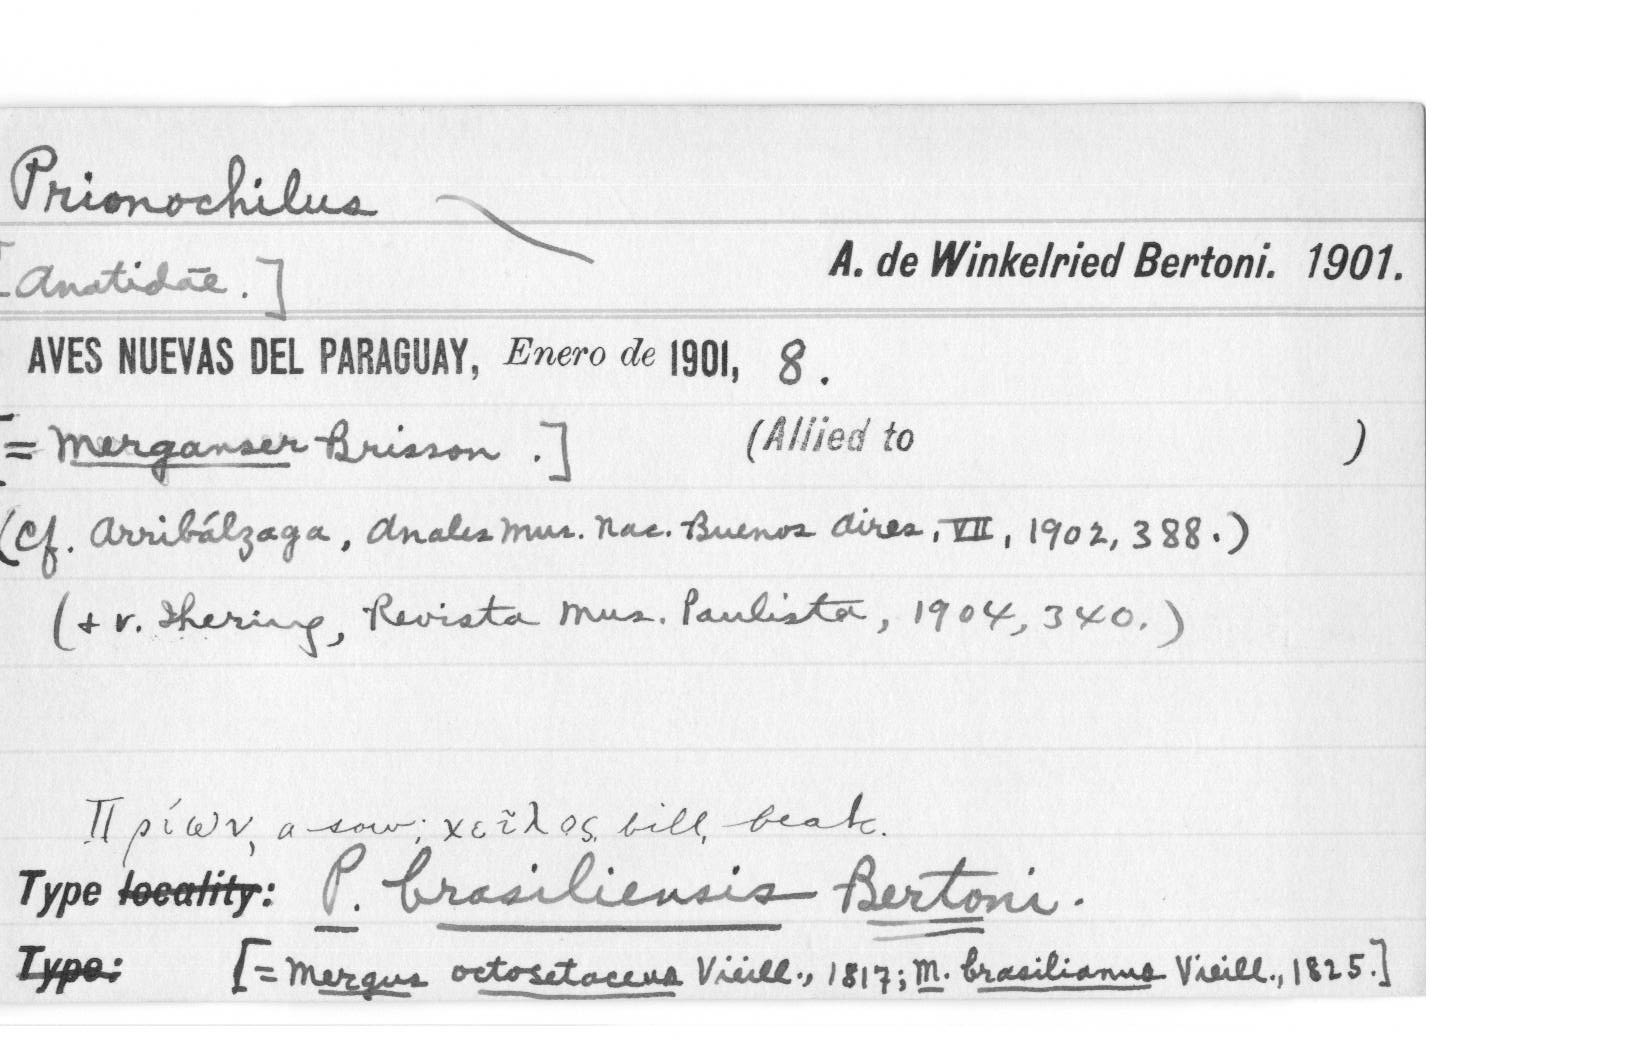 Prionochilus
[Anatidae.]
A. de Winkelried Bertoni. 1901.
AVES NUEVAS DEL PARAGUAY, Enero de 1901, 8.
[= Merganser Brisson.] (Allied to )
(Cf. Arribálzaga, Anales Mus. Nac. Buenos Aires, VII, 1902, 388.)
(+ v. Ihering, Revista Mus. Paulista, 1904, 340.)
Πρίων, a saw; χεῖλος, bill, beak.
Type locality: P. brasiliensis Bertoni.
Type: [= Mergus octosetaceus Vieill., 1817; M. brasilianus Vieill., 1825.]